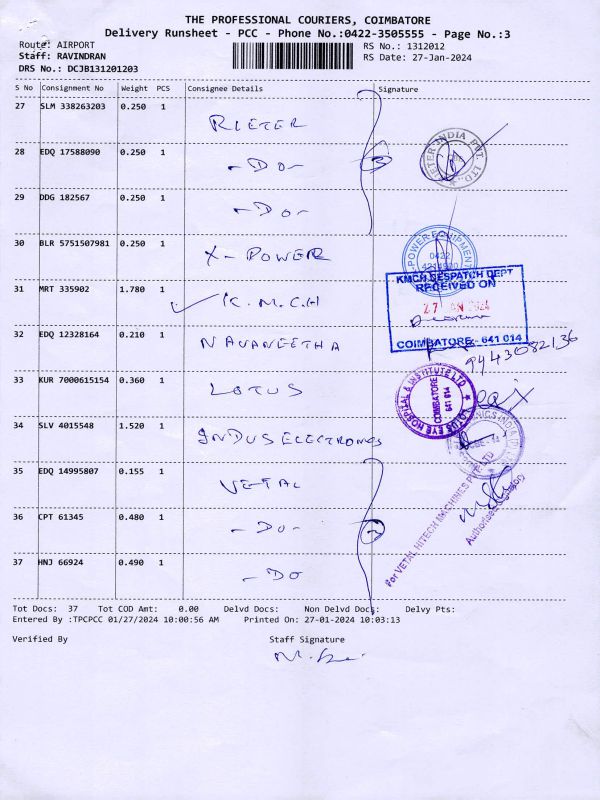 THE PROFESSIONAL COURIERS, COIMBATORE
Delivery Runsheet - PCC - Phone No.:0422-3505555 - Page No.:3
Route: AIRPORT
RS No.: 1312012
Staff: RAVINDRAN
RS Date: 27-Jan-2024
DRS No.: DCJB131201203
S No Consignment No Weight PCS Consignee Details Signature
27 SLM 338263203 0.250 1 RIETER
28 EDQ 17588090 0.250 1 - Do - 3
ETER INDIA PVT. LTD.
29 DDG 182567 0.250 1 - Do -
30 BLR 5751507981 0.250 1 X-POWER
POWER EQUIPMENT
0422
31 MRT 335902 1.780 1 ✓ K.M.C.H
KMCH DESPATCH DEPT
RECEIVED ON
27 JAN 2024
COIMBATORE - 641 014
32 EDQ 12328164 0.210 1 NAVANEETHA
9443082136
33 KUR 7000615154 0.360 1 LOTUS
LOTUS EYE HOSPITAL & INSTITUTE LTD
COIMBATORE
641 014
34 SLV 4015548 1.520 1 INDUS ELECTRONICS
35 EDQ 14995807 0.155 1 VETAL
For VETAL HITECH MACHINES PVT LTD
36 CPT 61345 0.480 1 - Do - 2
37 HNJ 66924 0.490 1 - DO
Tot Docs: 37 Tot COD Amt: 0.00 Delvd Docs: Non Delvd Docs: Delvy Pts:
Entered By :TPCPCC 01/27/2024 10:00:56 AM Printed On: 27-01-2024 10:03:13
Verified By Staff Signature